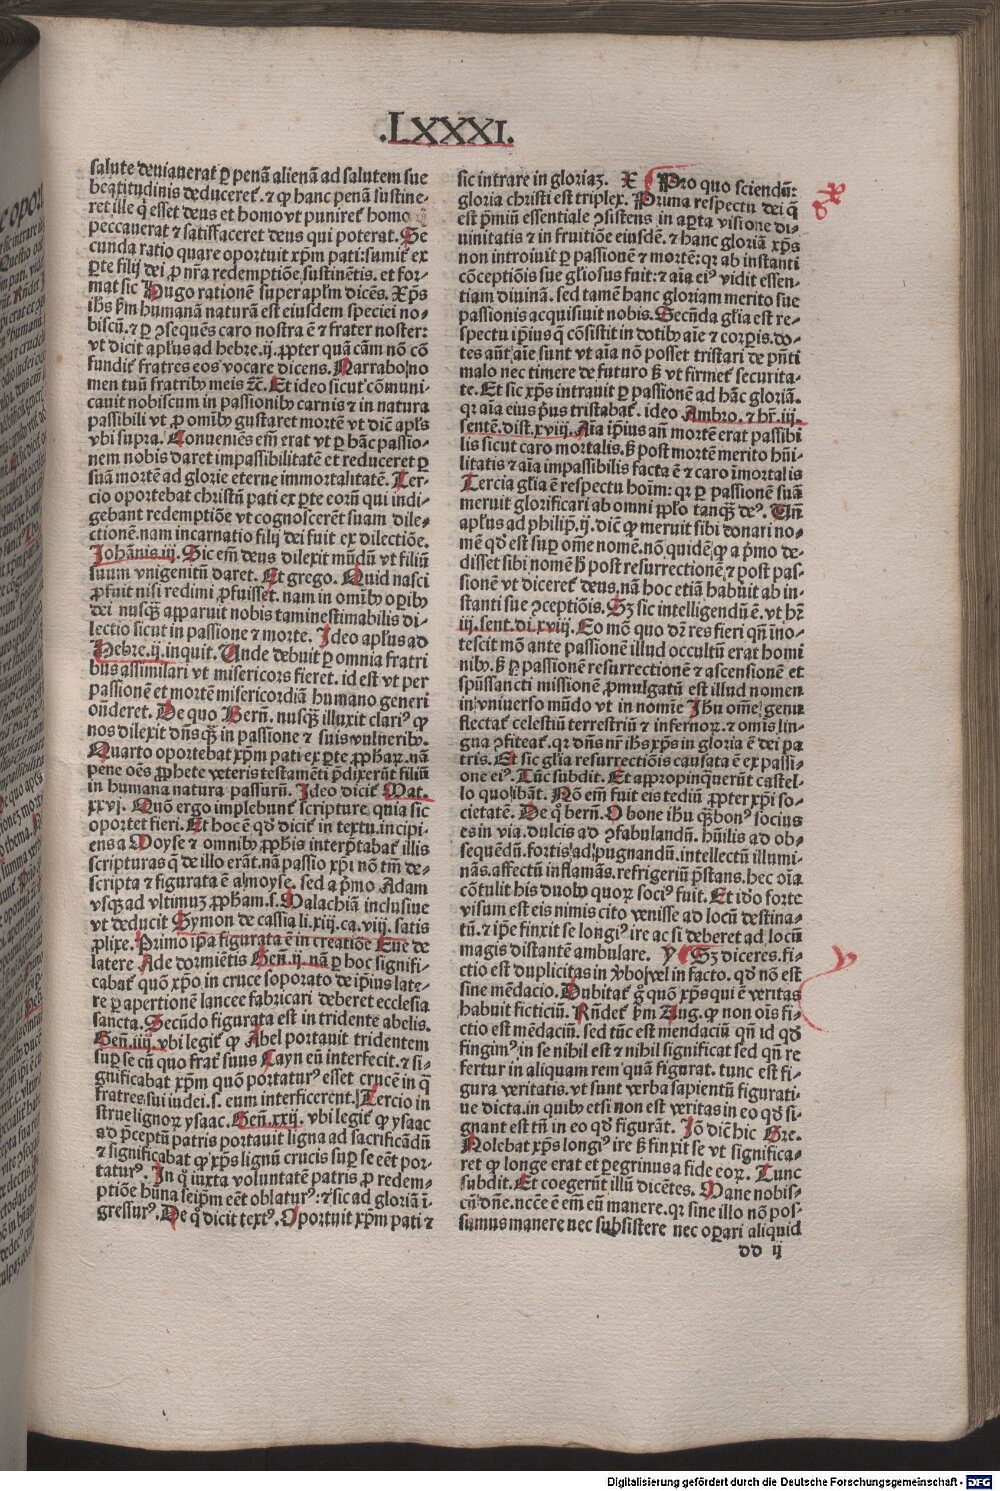 .LXXXI.
salute deuiauerat ꝑ penā alienā ad salutem sue
beatitudinis deduceret᷑. & ꝙ hanc penā sustine-
ret ille q̇ esset deus et homo vt puniret᷑ homo q̇
peccauerat & satissaceret deus qui poterat. Se
cunda ratio quare oportuit xp̄m pati: sumit᷑ ex
ꝑte filij dei ꝓ nr̄a redemptiōe sustinētis. et for-
mat sic Hugo rationē super apl̄m dicēs. Xp̄s
ihs ẜm humanā naturā est eiusdem speciei no-
biscū. & ꝑ ꝯsequēs caro nostra ē & frater noster:
vt dicit apl̄us ad hebre.ij. ꝓpter quā cām nō cō
fundit᷑ fratres eos vocare dicens. Narrabo no
men tuū fratribꝰ meis &c̄. Et ideo sicut cōmuni-
cauit nobiscum in passionibꝰ carnis & in natura
passibili vt ꝓ omībꝰ gustaret mortē vt dic̄ apl̄s
vbi supra. Conueniēs em̄ erat vt ꝑ hāc passio-
nem nobis daret impassibilitatē et reduceret ꝑ
suā mortē ad glorie eterne immortalitatē. Ter-
cio oportebat christū pati ex ꝑte eorū qui indi-
gebant redemptiōe vt cognoscerēt suam dile-
ctionē. nam incarnatio filij dei fuit ex dilectiōe.
Johānis.iij. Sic em̄ deus dilexit mūdū vt filiū
suum vnigenitū daret. Et grego. Quid nasci
ꝓfuit nisi redimi ꝓfuisset. nam in omībꝰ oꝑibꝰ
dei nusqȝ apparuit nobis tam inestimabilis di-
lectio sicut in passione & morte. Ideo apl̄us ad
Hebre.ij. inquit. Unde debuit ꝑ omnia fratri
bus assimilari vt misericors fieret. id est vt per
passionē et mortē misericordiā humano generi
on̄deret. De quo Bern̄. nusqȝ illuxit clariꝰ ꝙ
nos dilexit dn̄s qȝ in passione & suis vulneribꝰ.
Quarto oportebat xp̄m pati ex ꝑte ꝓphaꝝ. nā
pene oēs ꝓphete veteris testamēti p̄dixerūt filiū
in humana natura passurū. Ideo dicit᷑ Mat.
xxvj. Quō ergo implebunt᷑ scripture, quia sic
oportet fieri. Et hoc ē qd̓ dicit᷑ in textu. incipi-
ens a Moyse & omnibꝰ ꝓphis interp̄tabat᷑ illis
scripturas q̄ de illo erāt. nā passio xp̄i nō tm̄ de-
scripta & figurata ē a moyse. sed a p̄mo Adam
vsqȝ ad vltimuȝ ꝓpham. s. Malachiā inclusiue
vt deducit Symon de cassia li.xiij.ca.viij. satis
ꝓlixe. Primo ip̄a figurata ē in creatiōe Eue de
latere Ade dormiētis Gen̄.ij. nā ꝑ hoc signifi-
cabat᷑ quō xp̄o in cruce soporato de ip̄ius late-
re ꝑ apertionē lancee fabricari deberet ecclesia
sancta. Secūdo figurata est in tridente abelis.
Gen̄.iiij. vbi legit᷑ ꝙ Abel portauit tridentem
suꝑ se cū quo frat᷑ suus Cayn eū interfecit. & si-
gnificabat xp̄m quō portaturꝰ esset crucē in q̄
fratres sui iudei. s. eum interficerent. Tercio in
strue lignoꝝ ysaac. Gen̄.xxij. vbi legit᷑ ꝙ ysaac
ad p̄ceptū patris portauit ligna ad sacrificādū
& significabat ꝙ xp̄s lignū crucis suꝑ se eēt por-
taturꝰ. In q̇ iuxta voluntatē patris ꝓ redem-
ptiōe hūna seip̄m eēt oblaturꝰ: & sic ad gloriā ī-
gressurꝰ. De q̇ dicit textꝰ. Oportuit xp̄m pati &
sic intrare in gloriaȝ. X Pro quo sciendū:
gloria christi est triplex. Pruna respectu dei q̄
est p̄miū essentiale ꝯsistens in aꝑta visione di-
uinitatis & in fruitiōe eiusdē. & hanc gloriā xp̄s
non introiuit ꝑ passionē & mortē: qꝛ ab instanti
cōceptiōis sue gl̄iosus fuit: & aīa eiꝰ vidit essen-
tiam diuinā. sed tamē hanc gloriam merito sue
passionis acquisiuit nobis. Secūda gl̄ia est re-
spectu ip̄ius q̄ cōsistit in dotibꝰ aīe & corꝑis. do-
tes aūt aīe sunt vt aīa nō posset tristari de p̄nti
malo nec timere de futuro ẜ vt firmet᷑ securita-
te. Et sic xp̄s intrauit ꝑ passionē ad hāc gloriā.
qꝛ aīa eius p̄us tristabat᷑. ideo Ambro. & hr̄.iij.
sentē.dist.xviij. Aīa ip̄ius an̄ mortē erat passibi
lis sicut caro mortalis. ẜ post mortē merito hūi-
litatis & aīa impassibilis facta ē & caro īmortalis
Tercia gl̄ia ē respectu hoīm: qꝛ ꝑ passionē suā
meruit glorificari ab omni pp̄lo tanqȝ deꝰ. Un̄
apl̄us ad philip̄.ij. dic̄ ꝙ meruit sibi donari no-
mē qd̓ est suꝑ om̄e nomē. nō quidē ꝙ a p̄mo de-
disset sibi nomē hͦ post resurrectionē & post pas-
sionē vt diceret᷑ deus, nā hoc etiā habuit ab in-
stanti sue ꝯceptiōis. Sȝ sic intelligendū ē. vt hr̄
iij.sent.di.xviij. Eo mō quo dr̄ res fieri qn̄ ino-
tescit mō ante passionē illud occultū erat homi
nibꝰ. ẜ ꝑ passionē resurrectionē & ascensionē et
spūssancti missionē ꝓmulgatū est illud nomen
in vniuerso mūdo vt in nomīe Jhu om̄e genu
flectat᷑ celestiū terrestriū & infernoꝝ. & omīs lin-
gua ꝯfiteat᷑. qꝛ dn̄s nr̄ ihs xp̄s in gloria ē dei pa
tris. Et sic glia resurrectiōis causata ē ex passi-
one eiꝰ. Tūc subdit. Et appropinq̄uerūt castel-
lo quo ibāt. Nō em̄ fuit eis tediū ꝓpter xp̄i so-
cietatē. De q̇ bern̄. O bone ihu qȝ bonꝰ socius
es in via. dulcis ad ꝯfabulandū. hūilis ad ob-
sequēdū. fortis ad pugnandū. intellectū illumi-
nās. affectū inflamās. refrigeriū p̄stans. hec oīa
cōtulit his duobꝰ quoꝝ sociꝰ fuit. Et id̓o forte
visum est eis nimis cito venisse ad locū destina-
tū. & ip̄e finxit se longiꝰ ire ac si deberet ad locū
magis distantē ambulare. Y Sȝ diceres. fi-
ctio est duplicitas in vbo vel in facto. qd̓ nō est
sine mēdacio. Dubitat᷑ g̊ quō xp̄s qui ē veritas
habuit ficticiū. Rn̄det᷑ ẜm Aug. ꝙ non oīs fi-
ctio est mēdaciū. sed tūc est mendaciū qn̄ id qd̓
fingimꝰ in se nihil est & nihil significat sed qn̄ re
fertur in aliquam rem quā figurat. tunc est fi-
gura veritatis. vt sunt verba sapientū figurati-
ue dicta. in quibꝰ etsi non est veritas in eo qd̓ si-
gnant est tn̄ in eo qd̓ figurāt. Jō dic̄ hic Gre.
Nolebat xp̄s longiꝰ ire ẜ finxit se vt significa-
ret ꝙ longe erat et ꝑegrinus a fide eoꝝ. Tunc
subdit. Et coegerūt illū dicētes. Mane nobis-
cū dn̄e. nccē ē em̄ eū manere. qꝛ sine illo nō pos-
sumus manere nec subsistere nec oꝑari aliquid
dd ij
Digitalisierung gefördert durch die Deutsche Forschungsgemeinschaft - DFG